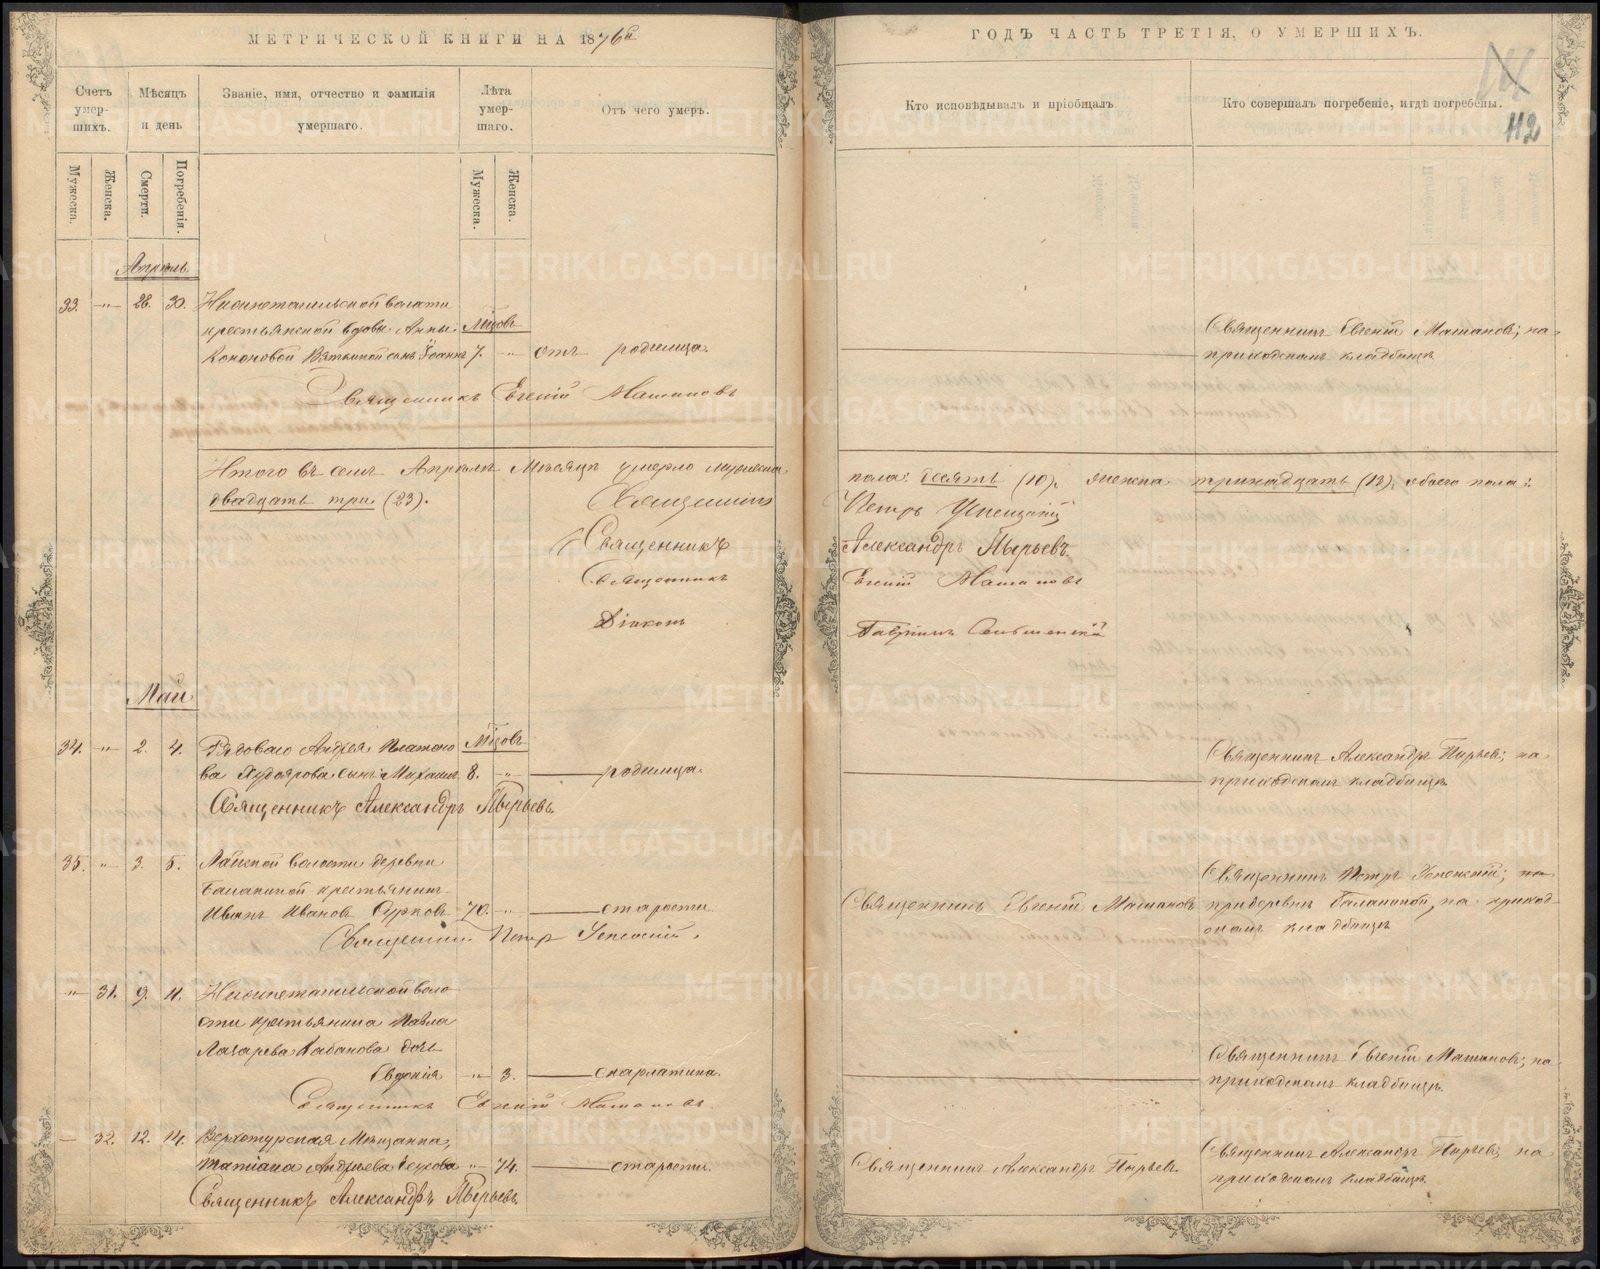 МЕТРИЧЕСКОЙ КНИГИ НА 1876й
ГОДЪ ЧАСТЬ ТРЕТІЯ, О УМЕРШИХЪ.
112
Счетъ умершихъ.
Мѣсяцъ и день
Званіе, имя, отчество и фамилія умершаго.
Лѣта умершаго.
Отъ чего умеръ.
Кто исповѣдывалъ и пріобщалъ.
Кто совершалъ погребеніе, и гдѣ погребены.
Мужеска.
Женска.
Смерти.
Погребенія.
Мужеска.
Женска.
Апрѣль
33. -„- 28. 30. Нижнетагильской волости
крестьянской вдовы Анны Мѣсцовъ
Кононовой Вяткиной сынъ Іоаннъ 7. -„- отъ родимца.
Священникъ Евгеній Машановъ; на
приходскомъ кладбищѣ
Священникъ Евгеній Машановъ
Итого въ семъ Апрѣлѣ Мѣсяцѣ умерло мужеска
пола: десять (10), женска тринадцать (13), обоего пола:
двадцать три (23).
Священникъ Петръ Успенскій
Священникъ Александръ Пырьевъ
Священникъ Евгеній Машановъ
Діаконъ Гавріилъ
Май
34. -„- 2. 4. Рядоваго Андрея Платоно Мѣсцовъ
ва Худоярова сынъ Михаилъ 8. -„- родимца.
Священникъ Александръ Пырьевъ; на
приходскомъ кладбищѣ
Священникъ Александръ Пырьевъ.
35. „ 3. 5. Лайской волости деревни
Балакиной крестьянинъ
Иванъ Ивановъ 70. -„- старости
Священникъ Евгеній Машановъ
Священникъ Петръ Успенскій; на
при деревнѣ Балакиной, на приход
скомъ кладбищѣ
Священникъ Петръ Успенскій.
-„- 31. 9. 11. Нижнетагильской воло
сти крестьянина Павла
Лазарева Кабанова дочь
Евдокія -„- 3. скарлатина.
Священникъ Евгеній Машановъ; на
приходскомъ кладбищѣ.
Священникъ Евгеній Машановъ
— 32. 12. 14. Верхотурская Мѣщанка
Татіана Андреева -„- 74. старости.
Священникъ Александръ Пырьевъ.
Священникъ Александръ Пырьевъ; на
приходскомъ кладбищѣ.
Священникъ Александръ Пырьевъ.
METRIKI.GASO-URAL.RU